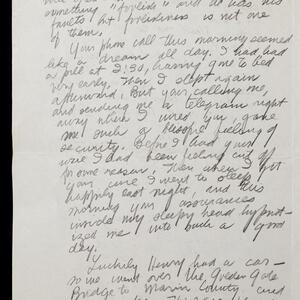 something "foolish" and he has his
faults but foolishness is not one
of them.
Your phone call this morning seemed
like a dream all day. I had had
a pill at 2:30, having gone to bed
very early. Then I slept again
afterward. But your calling me,
and sending me a telegram right
away when I wired you, gave
me such a blissful feeling of
security. Before I had your
wire I had been feeling out of
some reason. Then when I got
your wire I went to sleep
happily last night, and this
morning your assurances
inside my sleepy head hypnot-
ized me into such a good
day.
Luckily Henry had a car—
so we went over the Golden Gate
Bridge to Marin County,